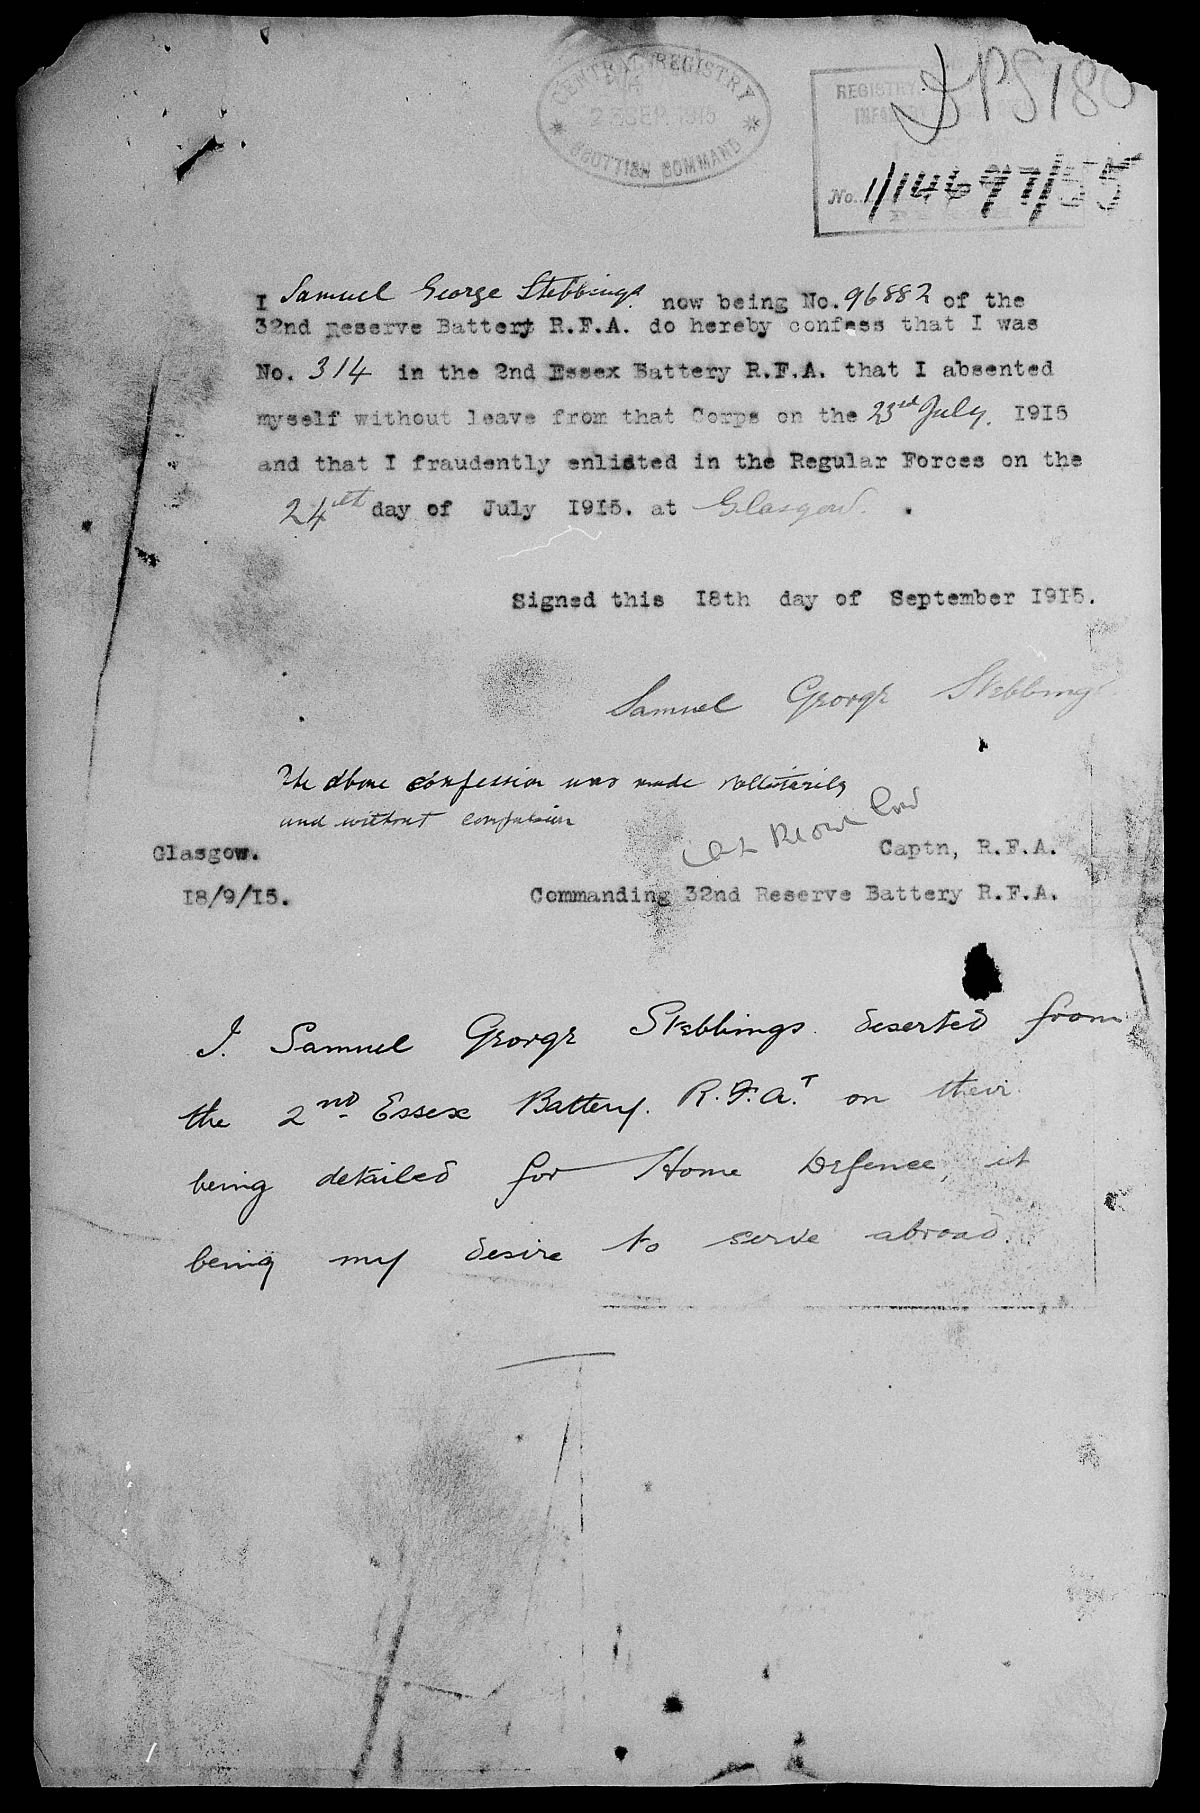 CENTRAL REGISTRY
SEP. 1915
SCOTTISH COMMAND
REGISTRY
No. 1/14697/55
I Samuel George Stebbings now being No. 96882 of the
32nd Reserve Battery R.F.A. do hereby confess that I was
No. 314 in the 2nd Essex Battery R.F.A. that I absented
myself without leave from that Corps on the 23rd July. 1915
and that I fraudently enlisted in the Regular Forces on the
24th day of July 1915. at Glasgow.
Signed this 18th day of September 1915.
Samuel George Stebbings
The above confession was made vollutarily
and without compulsion
Glasgow. Captn, R.F.A.
18/9/15. Commanding 32nd Reserve Battery R.F.A.
I. Samuel George Stebbings. deserted from
the 2nd Essex Battery. R.F.A.T on their
being detailed for Home Defence, it
being my desire to serve abroad.